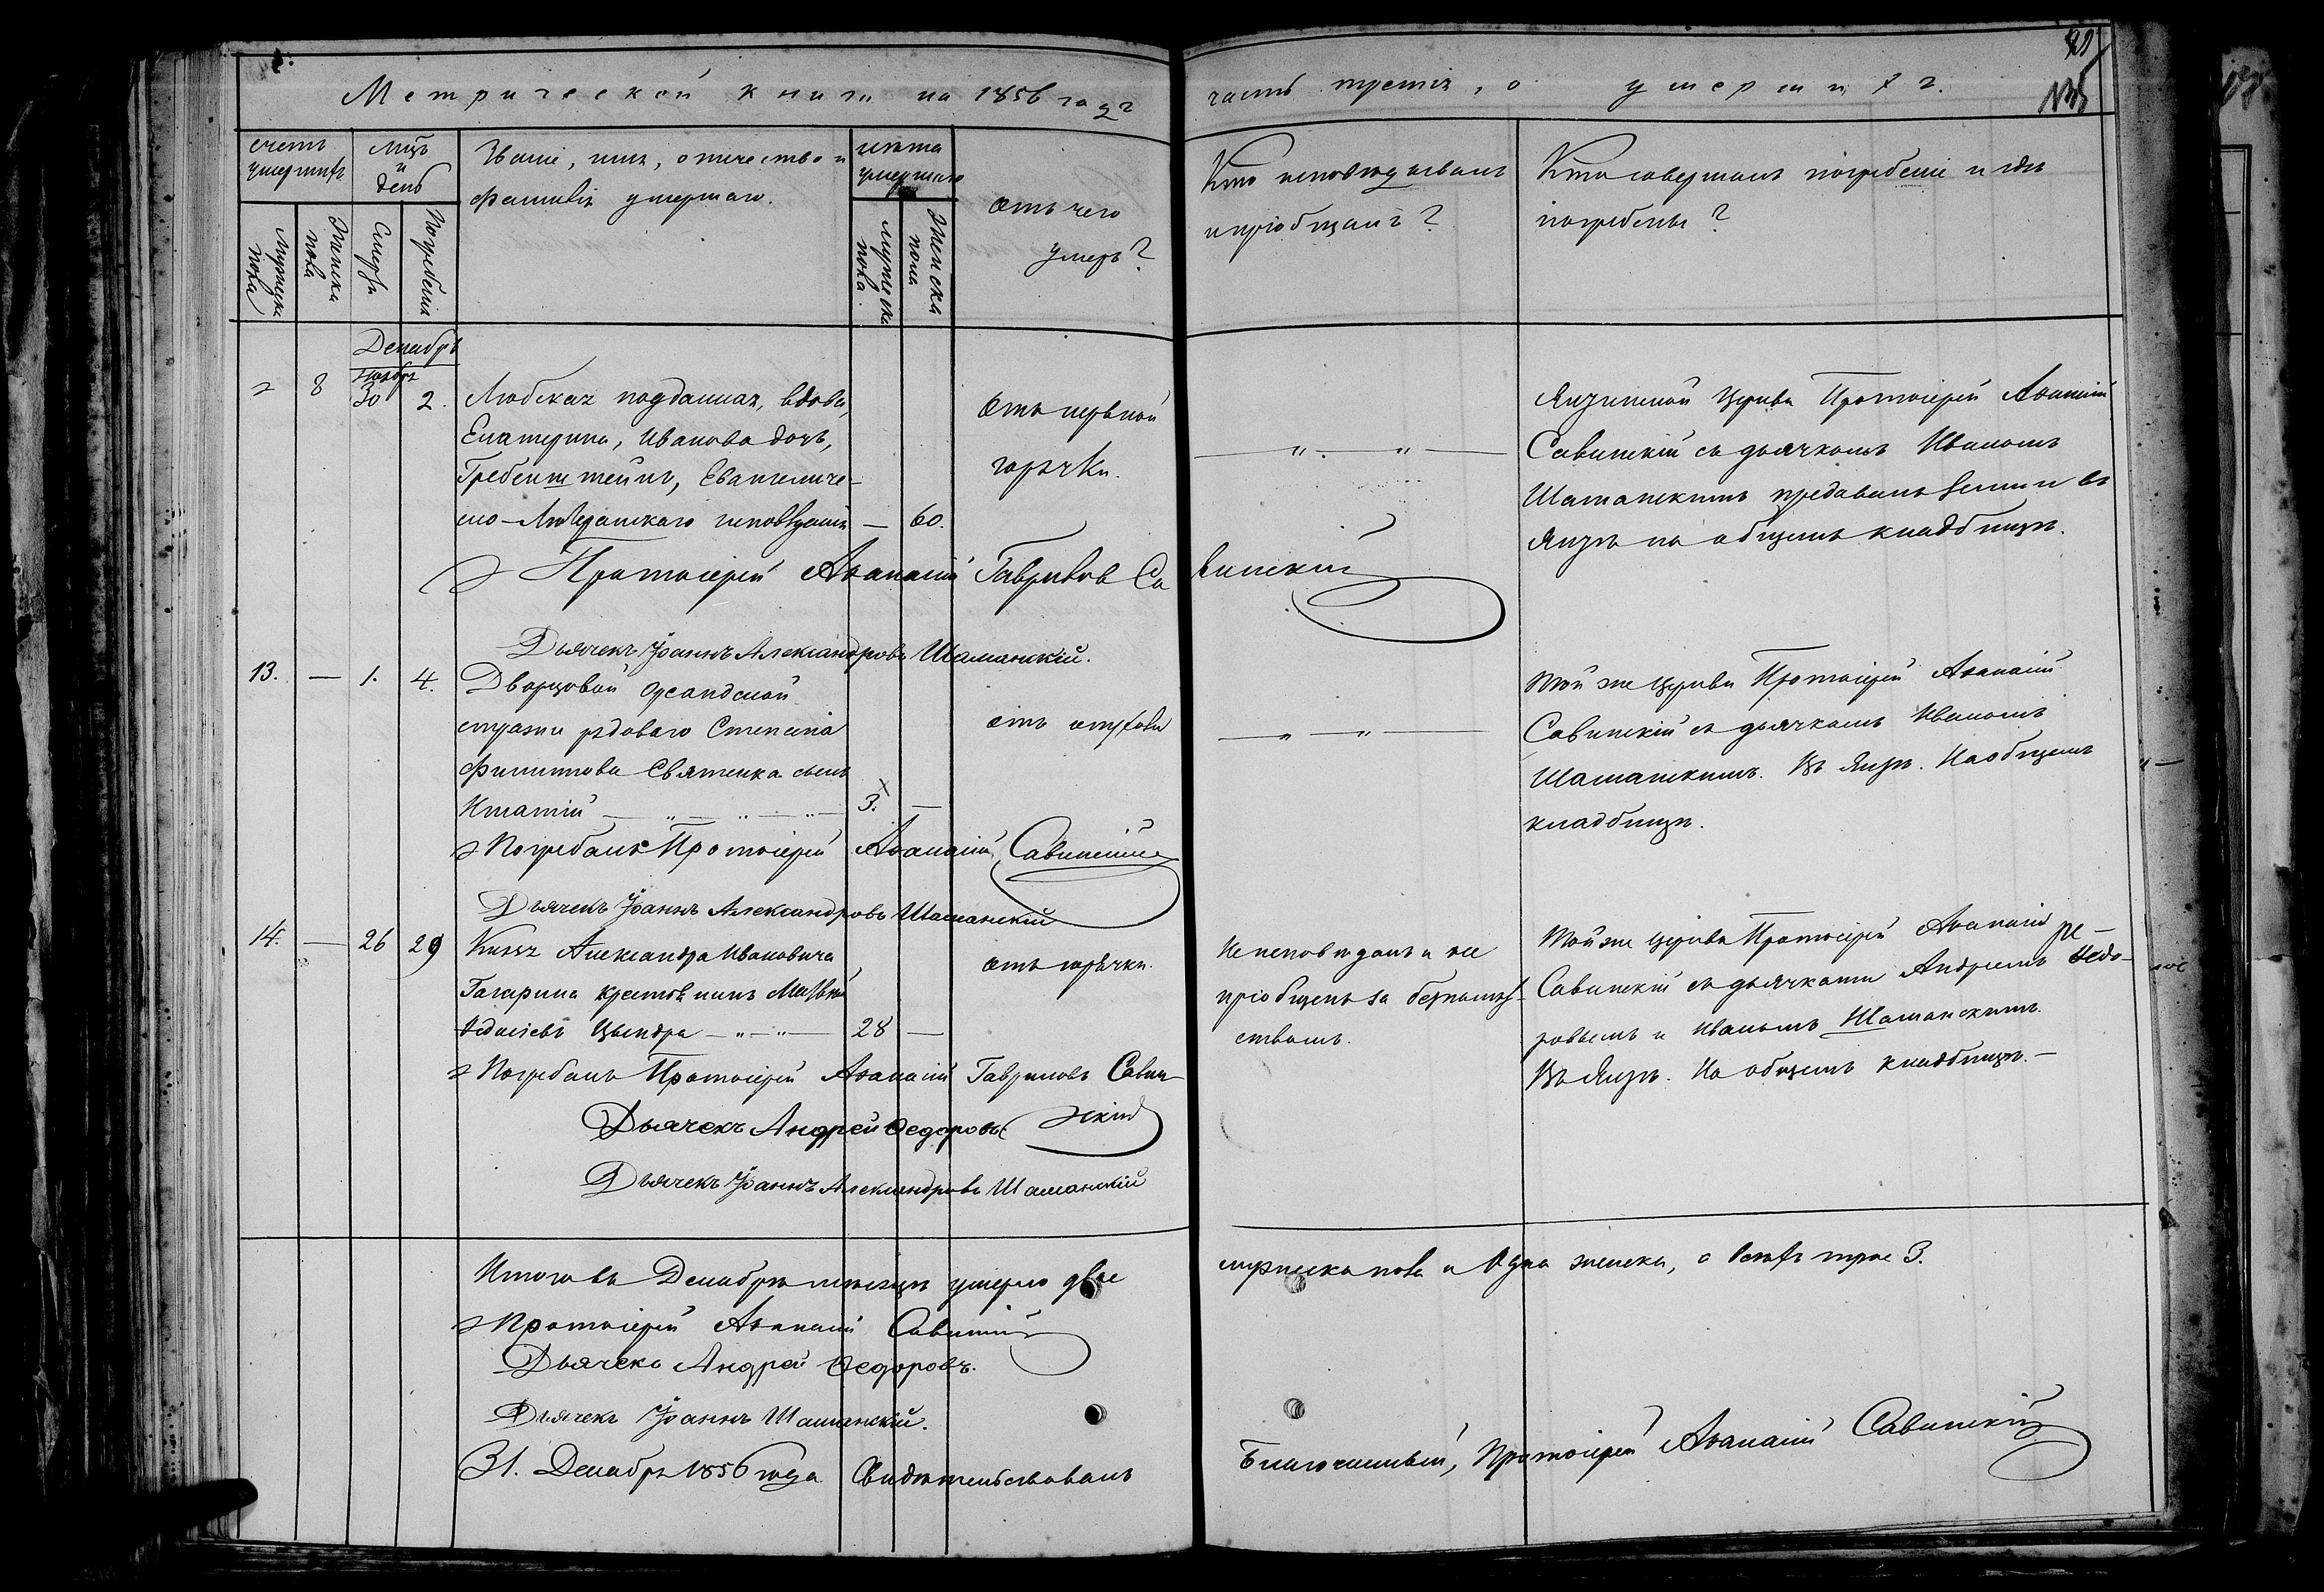 Метрической книги на 1856 годъ
часть третія, о умершихъ.
счетъ умершихъ
Мужеска пола
Женска пола
Мѣць и день
Смерти
Погребенія
Званіе, имя, отчество и фамилія умершаго.
лѣта умершаго
мужеска пола
Женска пола
отъ чего умеръ?
Кто исповѣдывалъ и пріобщалъ?
Кто совершалъ погребеніе и гдѣ погребены?
Декабрь
Ноябрь
8 30 2.
Любская подданная, вдова,
Екатерина, Иванова дочь,
Гребенштейнъ, Евангеличе-
ско-Лютеранскаго исповѣданія — 60.
Отъ нервной
горячки.
— „ — „ —
Ялтинской Церкви Протоіерей Аѳанасій
Савинскій съ дьячкомъ Иваномъ
Шаманскимъ предавалъ земли въ
Ялтѣ на общемъ кладбищѣ.
Протоіерей Аѳанасій Гавриловъ Савинскій
Дьячекъ Іоаннъ Александровъ Шаманскій.
13. — 1. 4.
Дворцовой Ореандской
стражи рядоваго Стенсина
Филиппова Святенка сынъ
Игнатій — „ — „ — „ — 3. —
отъ
— „ — „ —
Той же Церкви Протоіерей Аѳанасій
Савинскій съ дьячкомъ Иваномъ
Шаманскимъ. Въ Ялтѣ. На общемъ
кладбищѣ.
Погребалъ Протоіерей Аѳанасій Савинскій
Дьячекъ Іоаннъ Александровъ Шаманскій
14. — 26 29
Князя Александра Ивановича
Гагарина крестьянинъ Матвѣй
Цындра — „ — „ — 28 —
отъ горячки.
Не исповѣданъ и не
пріобщенъ за безпамят-
ствомъ.
Той же Церкви Протоіерей Аѳанасій
Савинскій съ дьячками Андреемъ Ѳедо-
ровымъ и Иваномъ Шаманскимъ.
Въ Ялтѣ. На общемъ кладбищѣ. —
Погребалъ Протоіерей Аѳанасій Гавриловъ Савин-
скій
Дьячекъ Андрей Ѳедоровъ
Дьячекъ Іоаннъ Александровъ Шаманскій
Итого въ Декабрѣ мѣсяцѣ умерло двое мужеска пола и одна женска, а всѣхъ трое 3.
Протоіерей Аѳанасій Савинскій
Дьячекъ Андрей Ѳедоровъ.
Дьячекъ Іоаннъ Шаманскій.
31. Декабря 1856 года Свидѣтельствовалъ Благочинный, Протоіерей Аѳанасій Савинскій